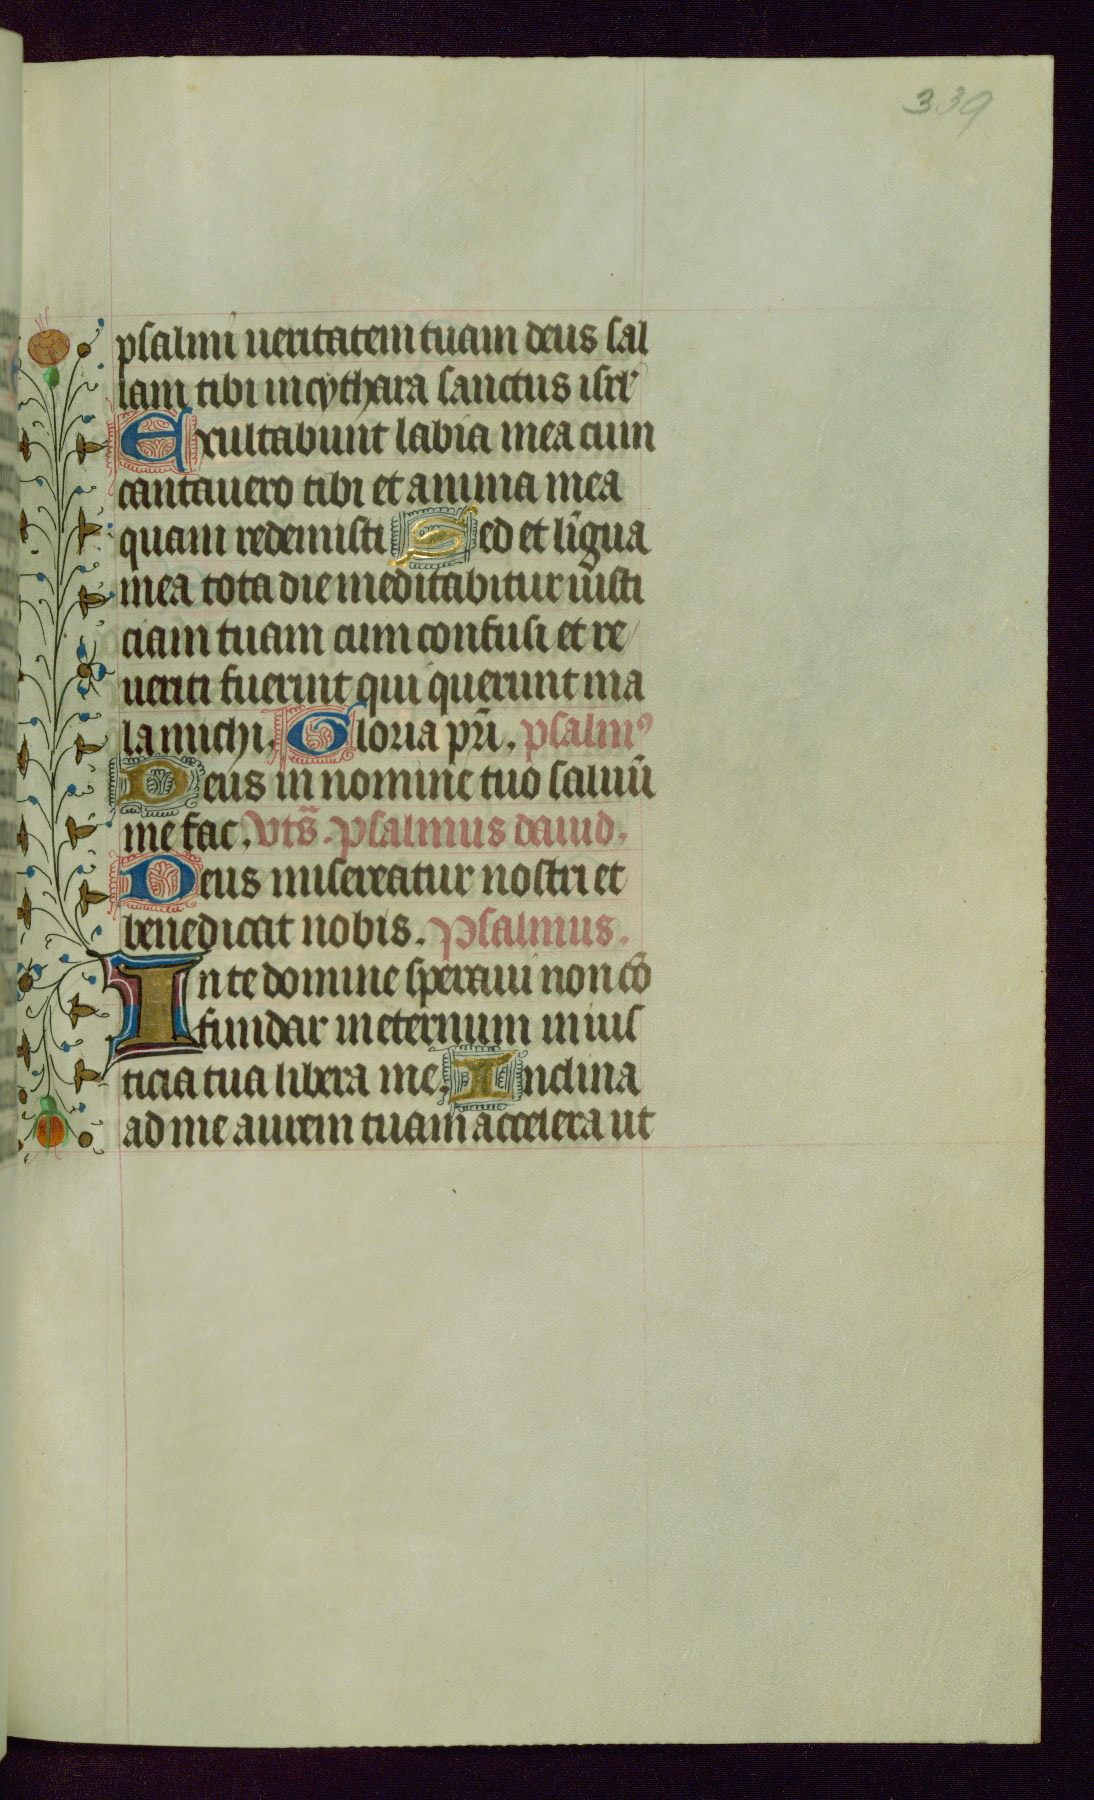 339
psalmi ueritatem tuam deus sal
lam tibi in cythara sanctus isrl'
Exultabunt labia mea cum
cantauero tibi et anima mea
quam redemisti Sed et līgua
mea tota die meditabitur iusti
ciam tuam cum confusi et re
ueriti fuerint qui querunt ma
la michi. Gloria pr̄i. psalmꝰ
Deus in nomine tuo saluū
me fac. vts̄. psalmus dauid.
Deus misereatur nostri et
benedicat nobis. psalmus.
In te domine speraui non cō
fundar in eternum in ius
ticia tua libera me. Inclina
ad me aurem tuam accelera ut